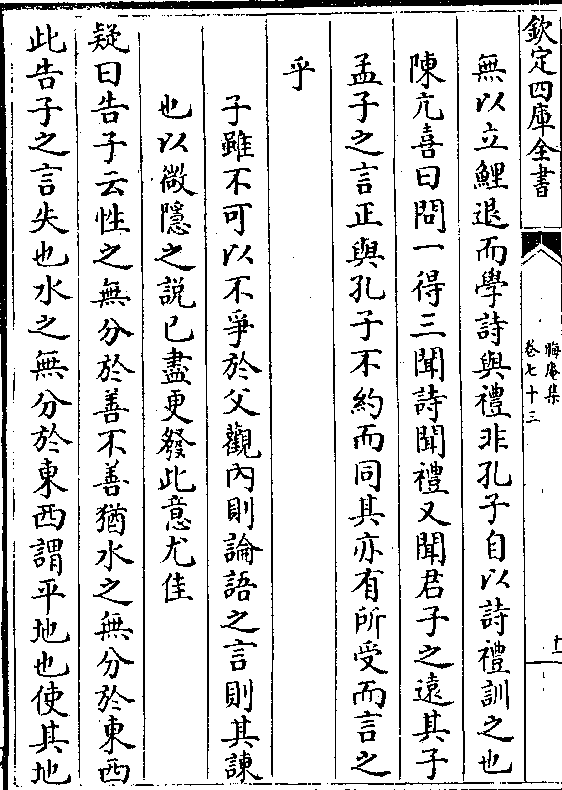 欽定四庫全書
晦庵集
卷七十三
十
無以立鯉退而學詩與禮非孔子自以詩禮訓之也
陳亢喜曰問一得三聞詩聞禮又聞君子之遠其子
孟子之言正與孔子不約而同其亦有所受而言之
乎
子雖不可以不爭於父觀內則論語之言則其諫
也以微隱之說已盡更發此意尤佳
疑曰告子云性之無分於善不善猶水之無分於東西
此告子之言失也水之無分於東西謂平地也使其地